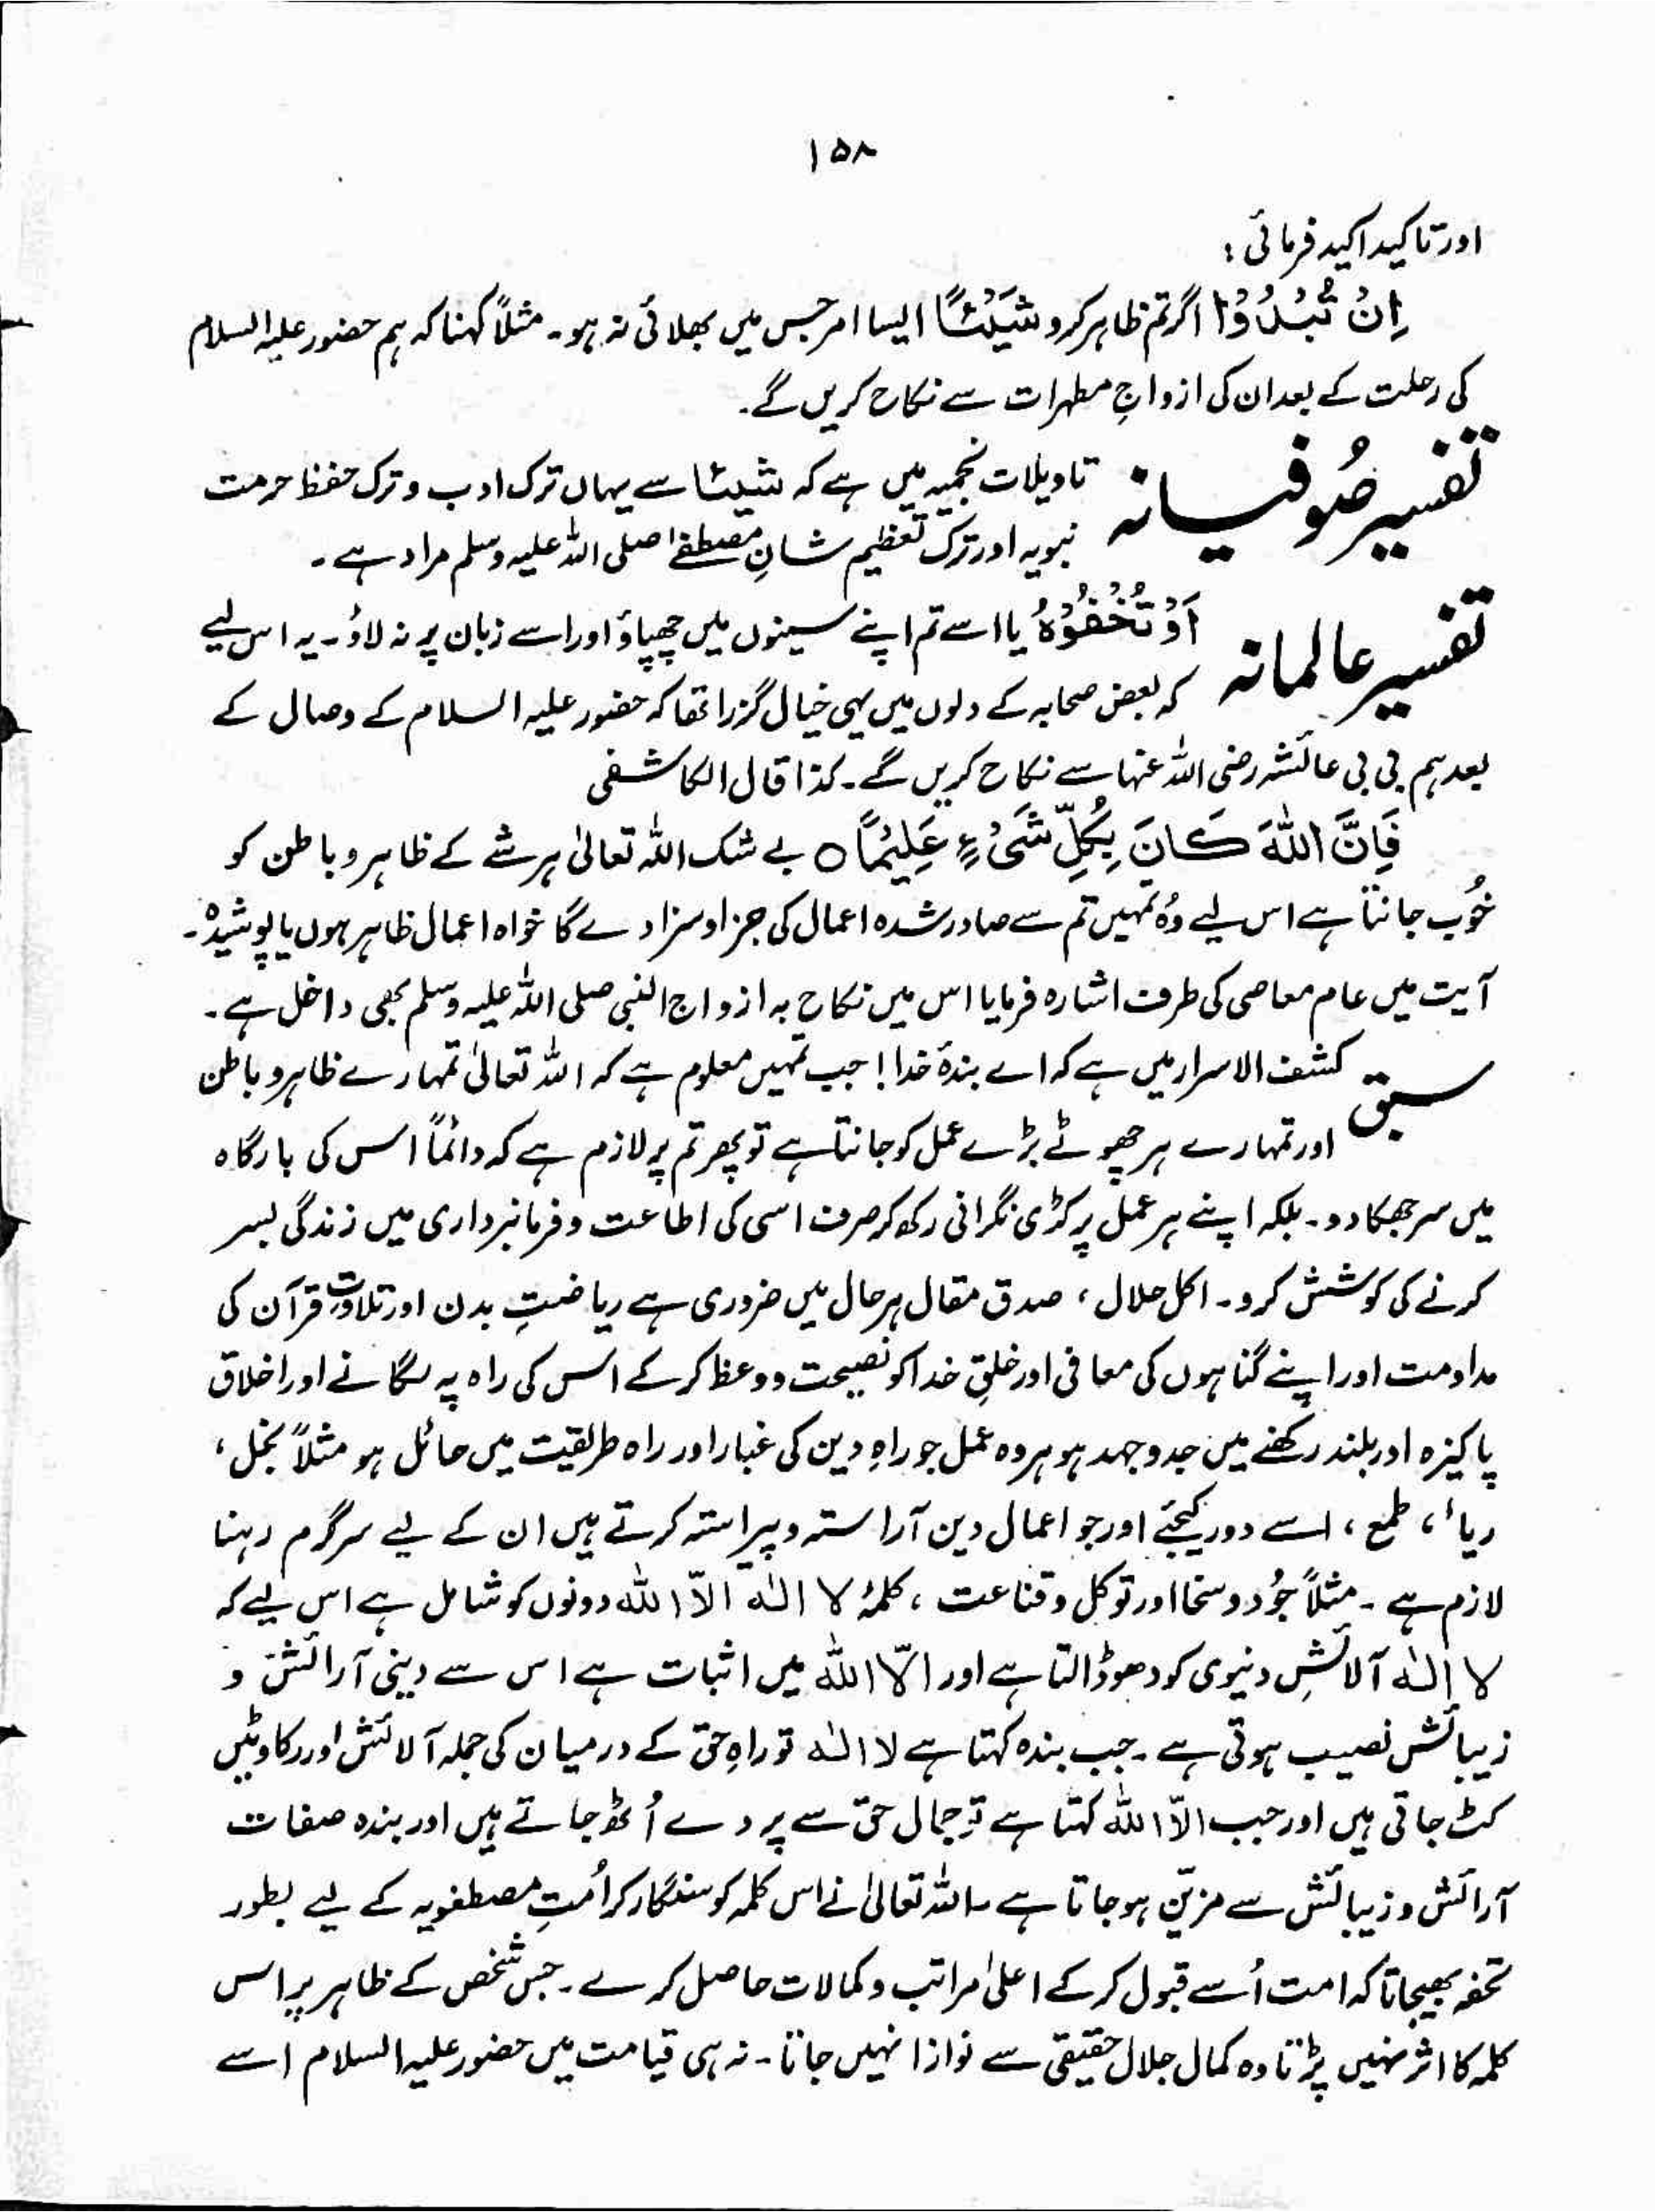 ۱۵۸
اور تاکید اکید فرمائی :
اِنْ تُبْدُوْا اگر تم ظاہر کرو شَیْـئًا ایسا امر جس میں بھلائی نہ ہو۔ مثلاً کہنا کہ ہم حضور علیہ السلام
کی رحلت کے بعد ان کی ازواجِ مطہرات سے نکاح کریں گے۔
تفسیر صُوفیانہ تاویلات نجمیہ میں ہے کہ شیئا سے یہاں ترک ادب و ترک حفظ حرمت
نبویہ اور ترک تعظیم شانِ مصطفےٰ صلی اللہ علیہ وسلم مراد ہے۔
تفسیر عالمانہ اَوْ تُخْفُوْهُ یا اسے تم اپنے سینوں میں چھپاؤ اور اسے زبان پر نہ لاؤ۔ یہ اس لیے
کہ بعض صحابہ کے دلوں میں یہی خیال گزرا تھا کہ حضور علیہ السلام کے وصال کے
بعد ہم بی بی عائشہ رضی اللہ عنہا سے نکاح کریں گے۔ کذا قال الکاشفی
فَاِنَّ اللّٰهَ كَانَ بِكُلِّ شَیْءٍ عَلِیْمًا ○ بے شک اللہ تعالیٰ ہر شے کے ظاہر و باطن کو
خُوب جانتا ہے اس لیے وُہ تمہیں تم سے صادر شدہ اعمال کی جزا و سزا دے گا خواہ اعمال ظاہر ہوں یا پوشیدہ۔
آیت میں عام معاصی کی طرف اشارہ فرمایا اس میں نکاح بہ ازواج النبی صلی اللہ علیہ وسلم بھی داخل ہے۔
سبق کشف الاسرار میں ہے کہ اے بندۂ خدا! جب تمہیں معلوم ہے کہ اللہ تعالیٰ تمہارے ظاہر و باطن
اور تمہارے ہر چھوٹے بڑے عمل کو جانتا ہے تو پھر تم پر لازم ہے کہ دائماً اس کی بارگاہ
میں سر جھکا دو۔ بلکہ اپنے ہر عمل پر کڑی نگرانی رکھ کر صرف اسی کی اطاعت و فرمانبرداری میں زندگی بسر
کرنے کی کوشش کرو۔ اکل حلال، صدق مقال ہر حال میں ضروری ہے ریاضتِ بدن اور تلاوت قرآن کی
مداومت اور اپنے گناہوں کی معافی اور خلقِ خدا کو نصیحت و وعظ کر کے اس کی راہ پہ لگانے اور اخلاق
پاکیزہ اور بلند رکھنے میں جدوجہد ہو ہر وہ عمل جو راہِ دین کی غبار اور راہ طریقیت میں حائل ہو مثلاً بخل،
ریاء، طمع، اسے دور کیجئے اور جو اعمال دین آراستہ و پیراستہ کرتے ہیں ان کے لیے سرگرم رہنا
لازم ہے۔ مثلاً جُود و سخا اور توکل و قناعت، کلمۂ لا الٰہ الّا اللہ دونوں کو شامل ہے اس لیے کہ
لا الٰہ آلائشِ دنیوی کو دھو ڈالتا ہے اور الّا اللہ میں اثبات ہے اس سے دینی آرائش و
زیبائش نصیب ہوتی ہے۔ جب بندہ کہتا ہے لا الٰہ تو راہِ حق کے درمیان کی جملہ آلائش اور رکاوٹیں
کٹ جاتی ہیں اور جب الّا اللہ کہتا ہے تو جمال حق سے پردے اُٹھ جاتے ہیں اور بندہ صفات
آرائش و زیبائش سے مزیّن ہو جاتا ہے۔ اللہ تعالیٰ نے اس کلمہ کو سنگار کر اُمتِ مصطفویہ کے لیے بطور
تحفہ بھیجا تاکہ امت اُسے قبول کر کے اعلیٰ مراتب و کمالات حاصل کرے۔ جس شخص کے ظاہر پر اس
کلمہ کا اثر نہیں پڑتا وہ کمال جلال حقیقی سے نوازا نہیں جاتا۔ نہ ہی قیامت میں حضور علیہ السلام اسے